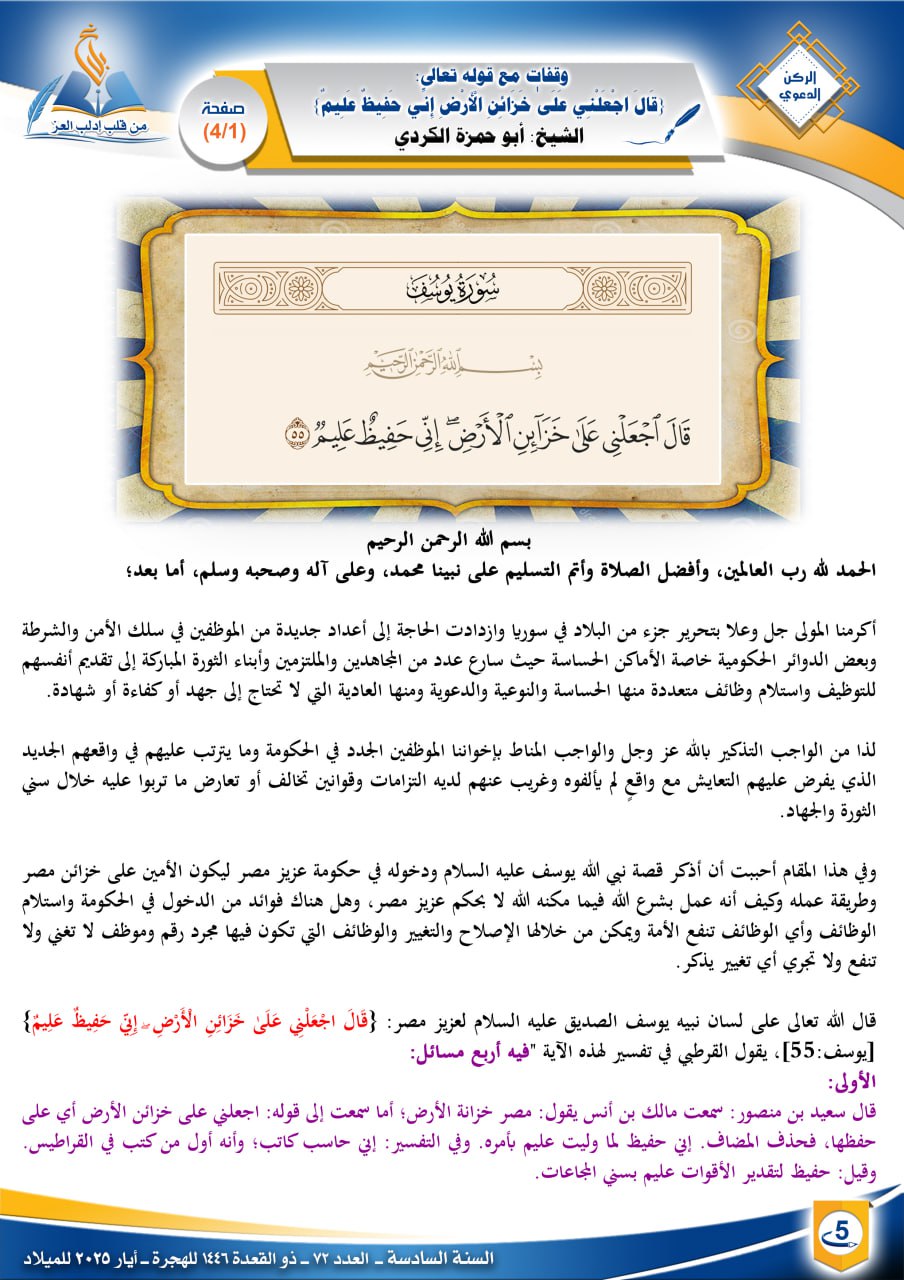 الركن
الدعوي
وقفات مع قوله تعالى:
{قَالَ اجْعَلْنِي عَلَىٰ خَزَائِنِ الْأَرْضِ إِنِّي حَفِيظٌ عَلِيمٌ}
الشيخ: أبو حمزة الكردي
صفحة
(4/1)
من قلب إدلب العز
سُورَةُ يُوسُفَ
بِسْمِ اللَّهِ الرَّحْمَٰنِ الرَّحِيمِ
قَالَ ٱجْعَلْنِي عَلَىٰ خَزَآئِنِ ٱلْأَرْضِۖ إِنِّي حَفِيظٌ عَلِيمٌ ٥٥
بسم الله الرحمن الرحيم
الحمد لله رب العالمين، وأفضل الصلاة وأتم التسليم على نبينا محمد، وعلى آله وصحبه وسلم، أما بعد؛
أكرمنا المولى جل وعلا بتحرير جزء من البلاد في سوريا وازدادت الحاجة إلى أعداد جديدة من الموظفين في سلك الأمن والشرطة
وبعض الدوائر الحكومية خاصة الأماكن الحساسة حيث سارع عدد من المجاهدين والملتزمين وأبناء الثورة المباركة إلى تقديم أنفسهم
للتوظيف واستلام وظائف متعددة منها الحساسة والنوعية والدعوية ومنها العادية التي لا تحتاج إلى جهد أو كفاءة أو شهادة.
لذا من الواجب التذكير بالله عز وجل والواجب المناط بإخواننا الموظفين الجدد في الحكومة وما يترتب عليهم في واقعهم الجديد
الذي يفرض عليهم التعايش مع واقعٍ لم يألفوه وغريب عنهم لديه التزامات وقوانين تخالف أو تعارض ما تربوا عليه خلال سني
الثورة والجهاد.
وفي هذا المقام أحببت أن أذكر قصة نبي الله يوسف عليه السلام ودخوله في حكومة عزيز مصر ليكون الأمين على خزائن مصر
وطريقة عمله وكيف أنه عمل بشرع الله فيما مكنه الله لا بحكم عزيز مصر، وهل هناك فوائد من الدخول في الحكومة واستلام
الوظائف وأي الوظائف تنفع الأمة ويمكن من خلالها الإصلاح والتغيير والوظائف التي تكون فيها مجرد رقم وموظف لا تغني ولا
تنفع ولا تجري أي تغيير يذكر.
قال الله تعالى على لسان نبيه يوسف الصديق عليه السلام لعزيز مصر: {قَالَ اجْعَلْنِي عَلَىٰ خَزَائِنِ الْأَرْضِ ۖ إِنِّي حَفِيظٌ عَلِيمٌ}
[يوسف:55]، يقول القرطبي في تفسير لهذه الآية "فيه أربع مسائل:
الأولى:
قال سعيد بن منصور: سمعت مالك بن أنس يقول: مصر خزانة الأرض؛ أما سمعت إلى قوله: اجعلني على خزائن الأرض أي على
حفظها، فحذف المضاف. إني حفيظ لما وليت عليم بأمره. وفي التفسير: إني حاسب كاتب؛ وأنه أول من كتب في القراطيس.
وقيل: حفيظ لتقدير الأقوات عليم بسني المجاعات.
5
السنة السادسة - العدد ٧٢ - ذو القعدة ١٤٤٦ للهجرة - أيار ٢٠٢٥ للميلاد